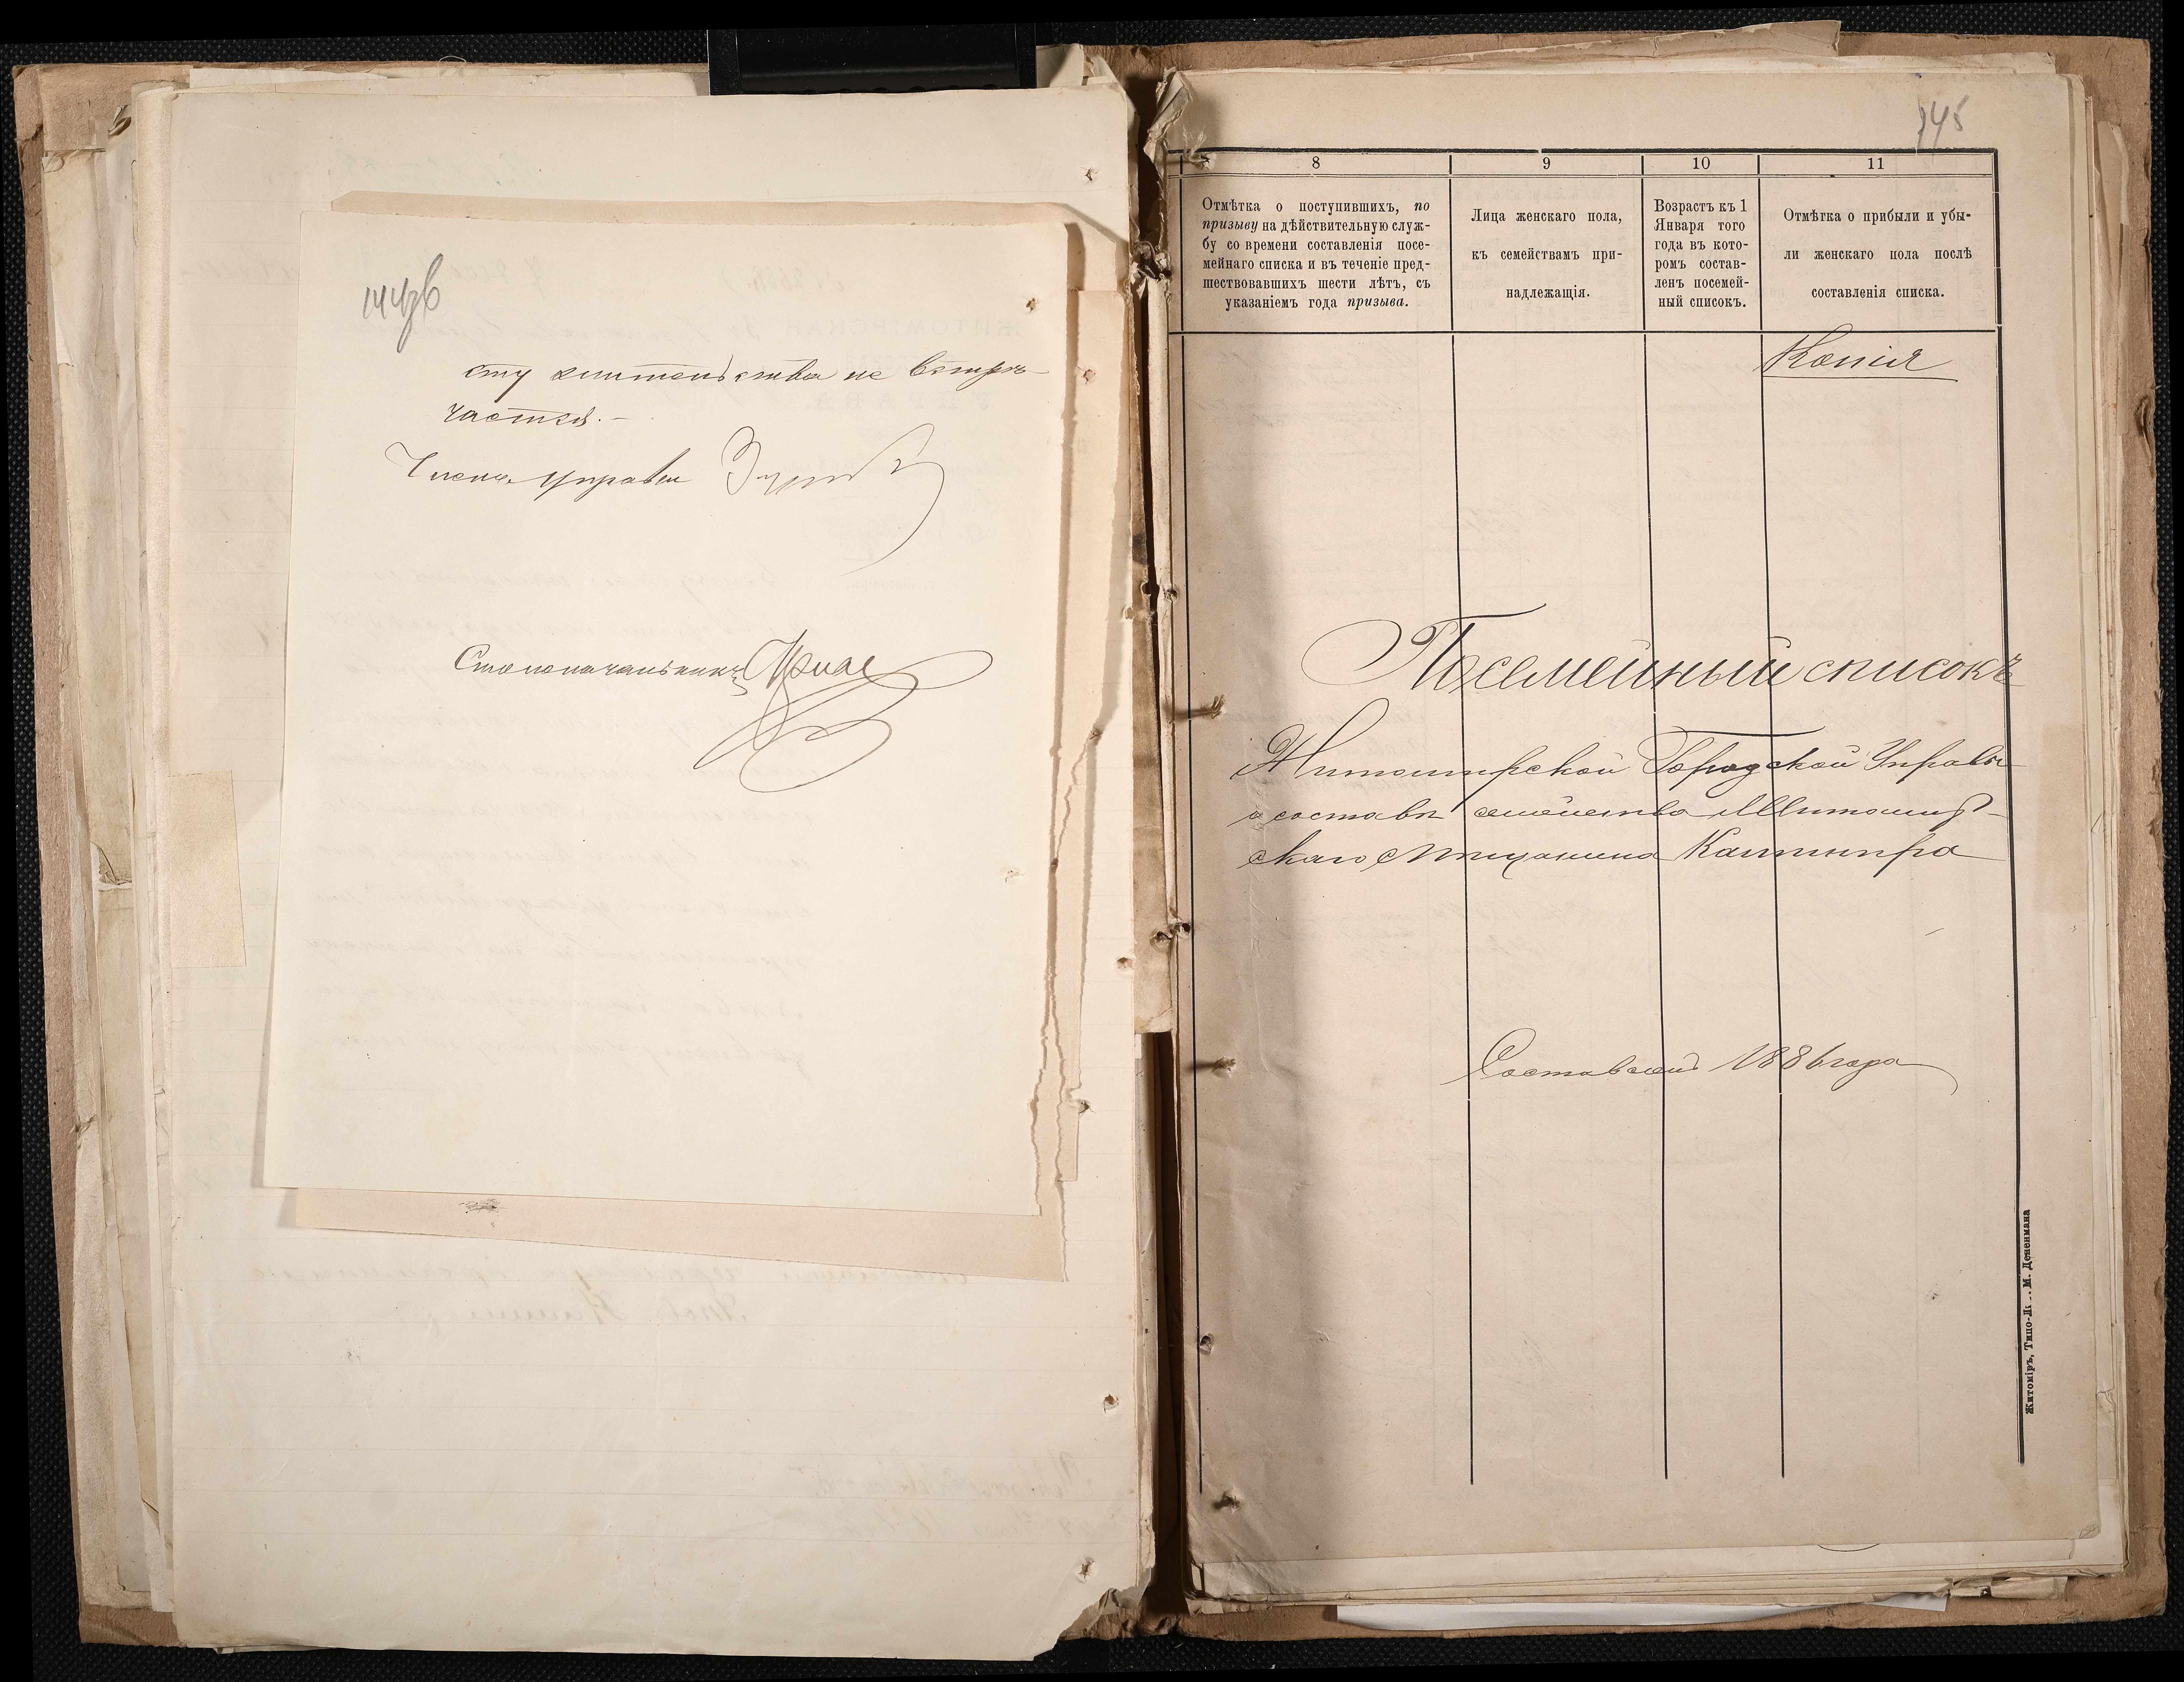 сту жительства не встрѣ-
чается.-
Членъ управы
Столоначальникъ
145
8
9
10
11
Отмѣтка о поступившихъ, по
призыву на дѣйствительную служ-
бу со времени составленія посе-
мейнаго списка и въ теченіе пред-
шествовавшихъ шести лѣтъ, съ
указаніемъ года призыва.
Лица женскаго пола,
къ семействамъ при-
надлежащія.
Возрастъ къ 1
Января того
года въ кото-
ромъ состав-
ленъ посемей-
ный списокъ.
Отмѣтка о прибыли и убы-
ли женскаго пола послѣ
составленія списка.
Копія
Посемейный списокъ
Житомирской Городской Управы
о составѣ семейства Житомир-
скаго Мѣщанина Казимира
Составленъ 1886 года
Житоміръ, Типо-Л М. Дененмана